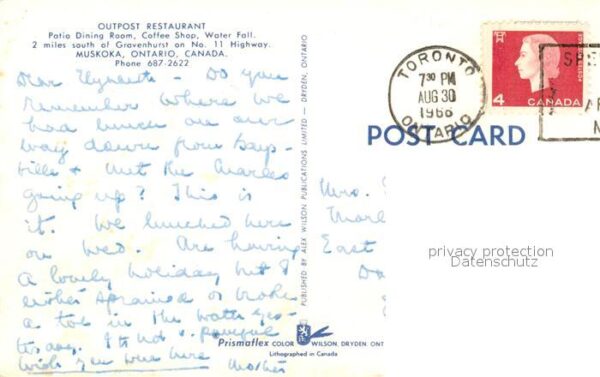 OUTPOST RESTAURANT
Patio Dining Room, Coffee Shop, Water Fall.
2 miles south of Gravenhurst on No. 11 Highway.
MUSKOKA, ONTARIO, CANADA.
Phone 687-2622
Dear - Do you
remember where we
had lunch on our
way down from Bays-
ville & met the Charles
going up? This is
it. We lunched here
on Wed. Are having
A lovely holiday but I
either sprained or broke
a toe in the water yes-
terday. It's not
wish you were here Mother
PUBLISHED BY ALEX WILSON PUBLICATIONS LIMITED — DRYDEN, ONTARIO
Prismaflex COLOR WILSON, DRYDEN, ONT
Lithographed in Canada
TORONTO
7 30 PM
AUG 30
1966
ONTARIO
4 CANADA
POSTAGE POSTES
SPE
AF
N
POST CARD
Mrs.
East
privacy protection
Datenschutz